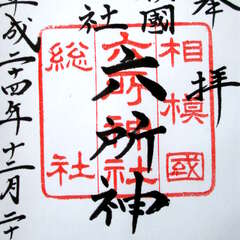 奉拝
國
社
六所神
相模國
六所神社
総社
平成二十四年十二月二十